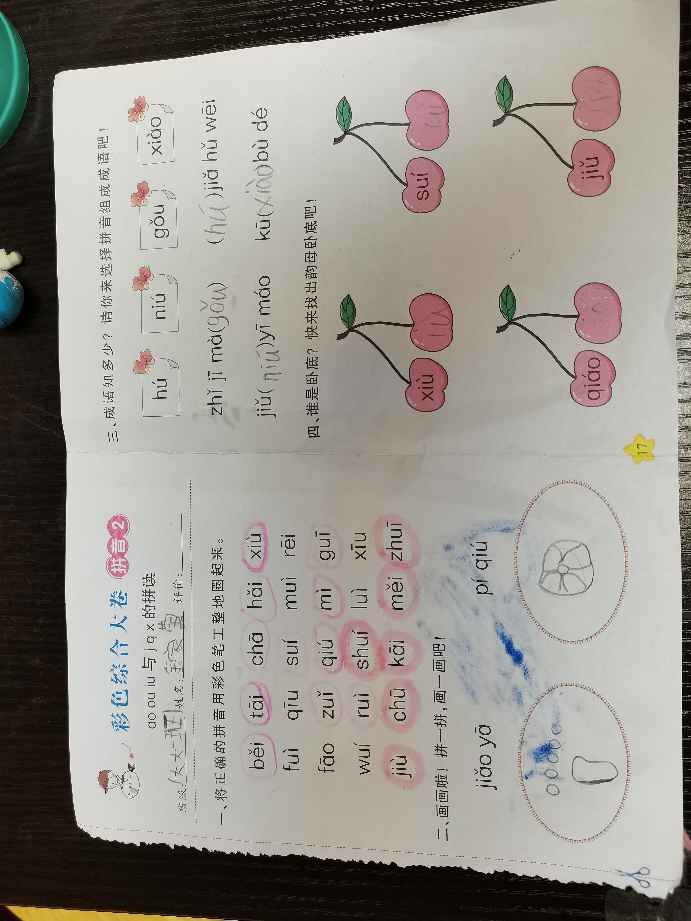 彩色综合大卷 拼音2
ao ou iu 与 j q x 的拼读
班级: 大大二班 姓名: 评价:
一、将正确的拼音用彩色笔工整地圈起来。
běi tāi chā hǎi xiù
fuì qīu suí muì rēi
fāo zuǐ qiú mì guī
wuí ruì shuí luì xīu
jiù chū kāi měi zhuī
二、画画啦！拼一拼，画一画吧！
jiǎo yā pí qiú
三、成语知多少？请你来选择拼音组成成语吧！
hú niú gǒu xiào
zhǐ jī mà(gǒu) (hú)jiǎ hǔ wēi
jiǔ(niú)yī máo kū(xiào)bù dé
四、谁是卧底？快来找出韵母卧底吧！
xiù suí
qiáo jiǔ
17